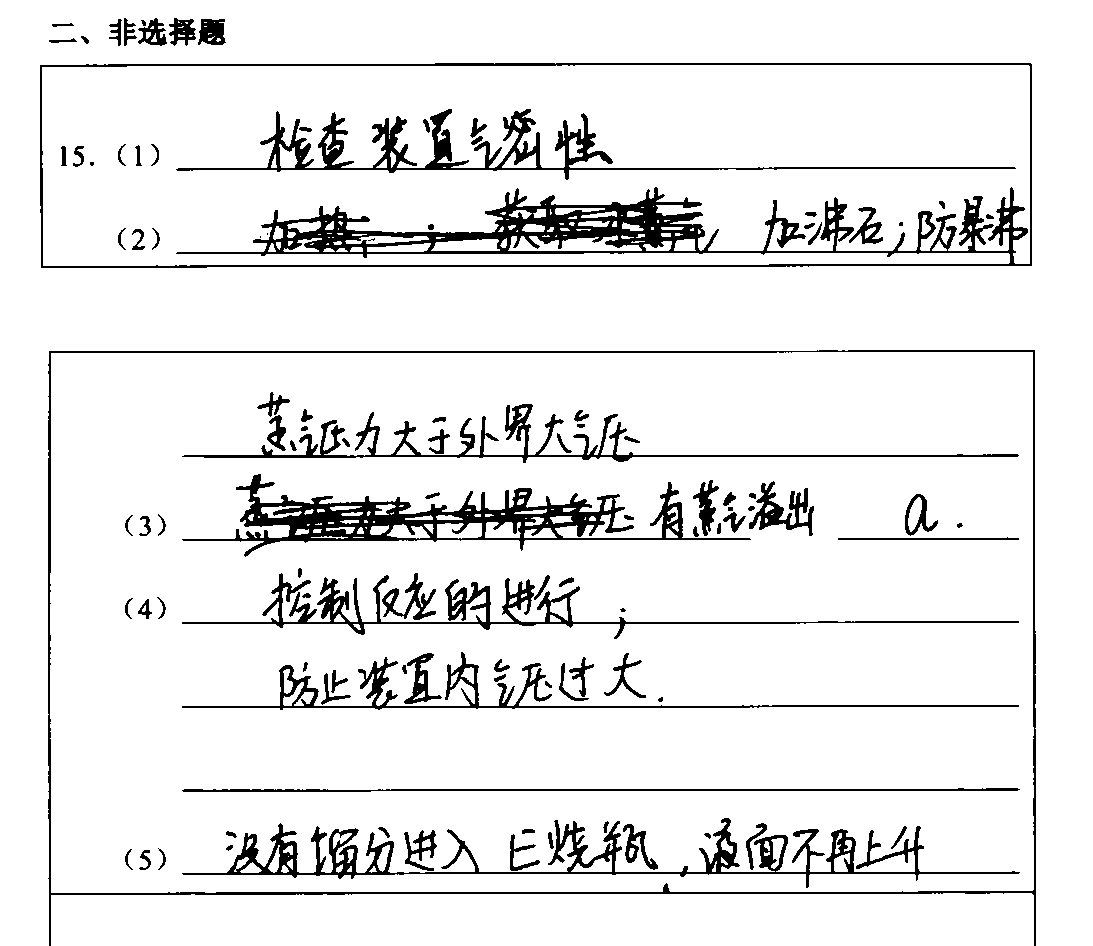 二、非选择题
15.（1） 检查装置气密性
（2） 加沸石；防暴沸
蒸气压力大于外界大气压
（3） 有蒸气溢出 a.
（4） 控制反应的进行；
防止装置内气压过大.
（5） 没有馏分进入E烧瓶，液面不再上升